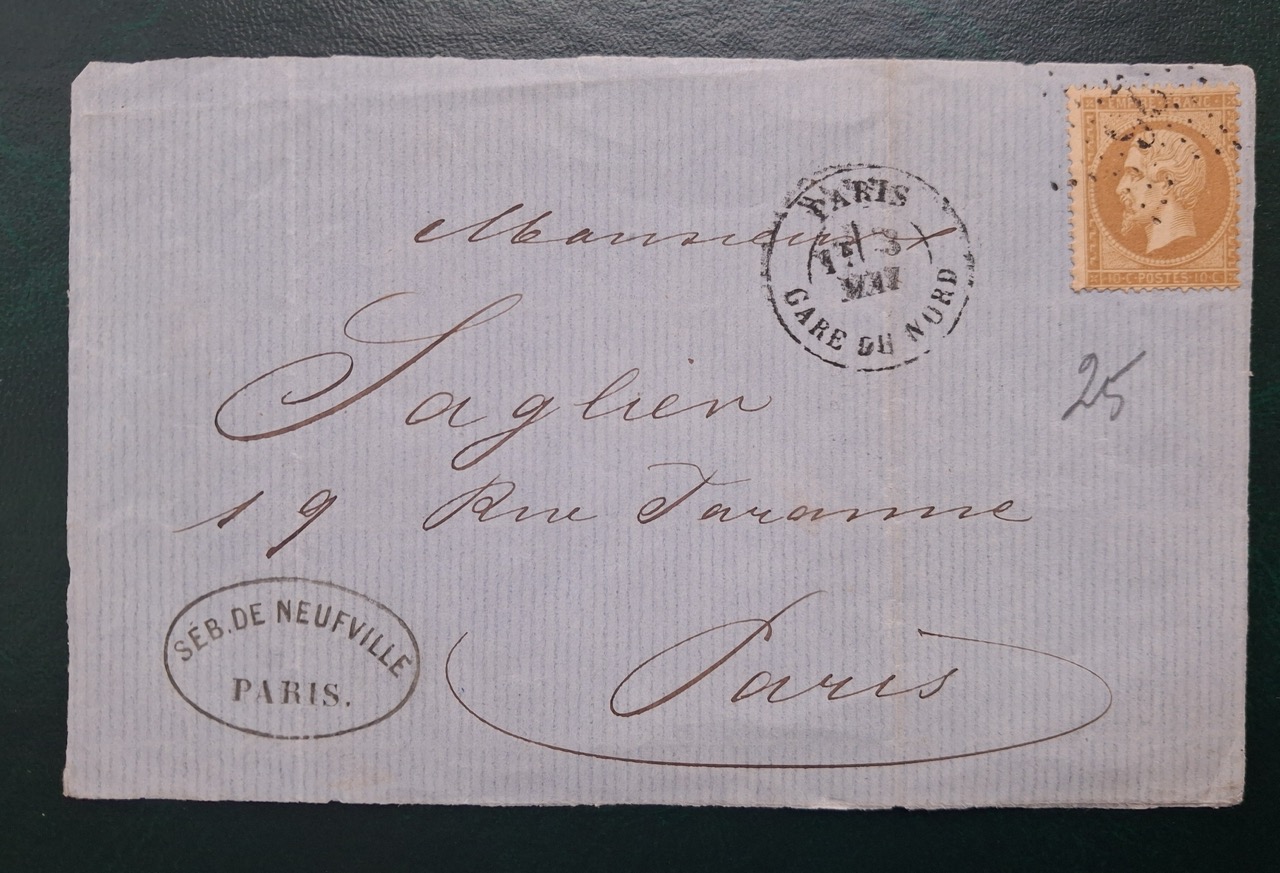 EMPIRE FRANC
10 C POSTES 10 C
PARIS
3
MAI
GARE DU NORD
Monsieur
Saglier
19 Rue Taranne
Paris
25
SÉB. DE NEUFVILLE
PARIS.